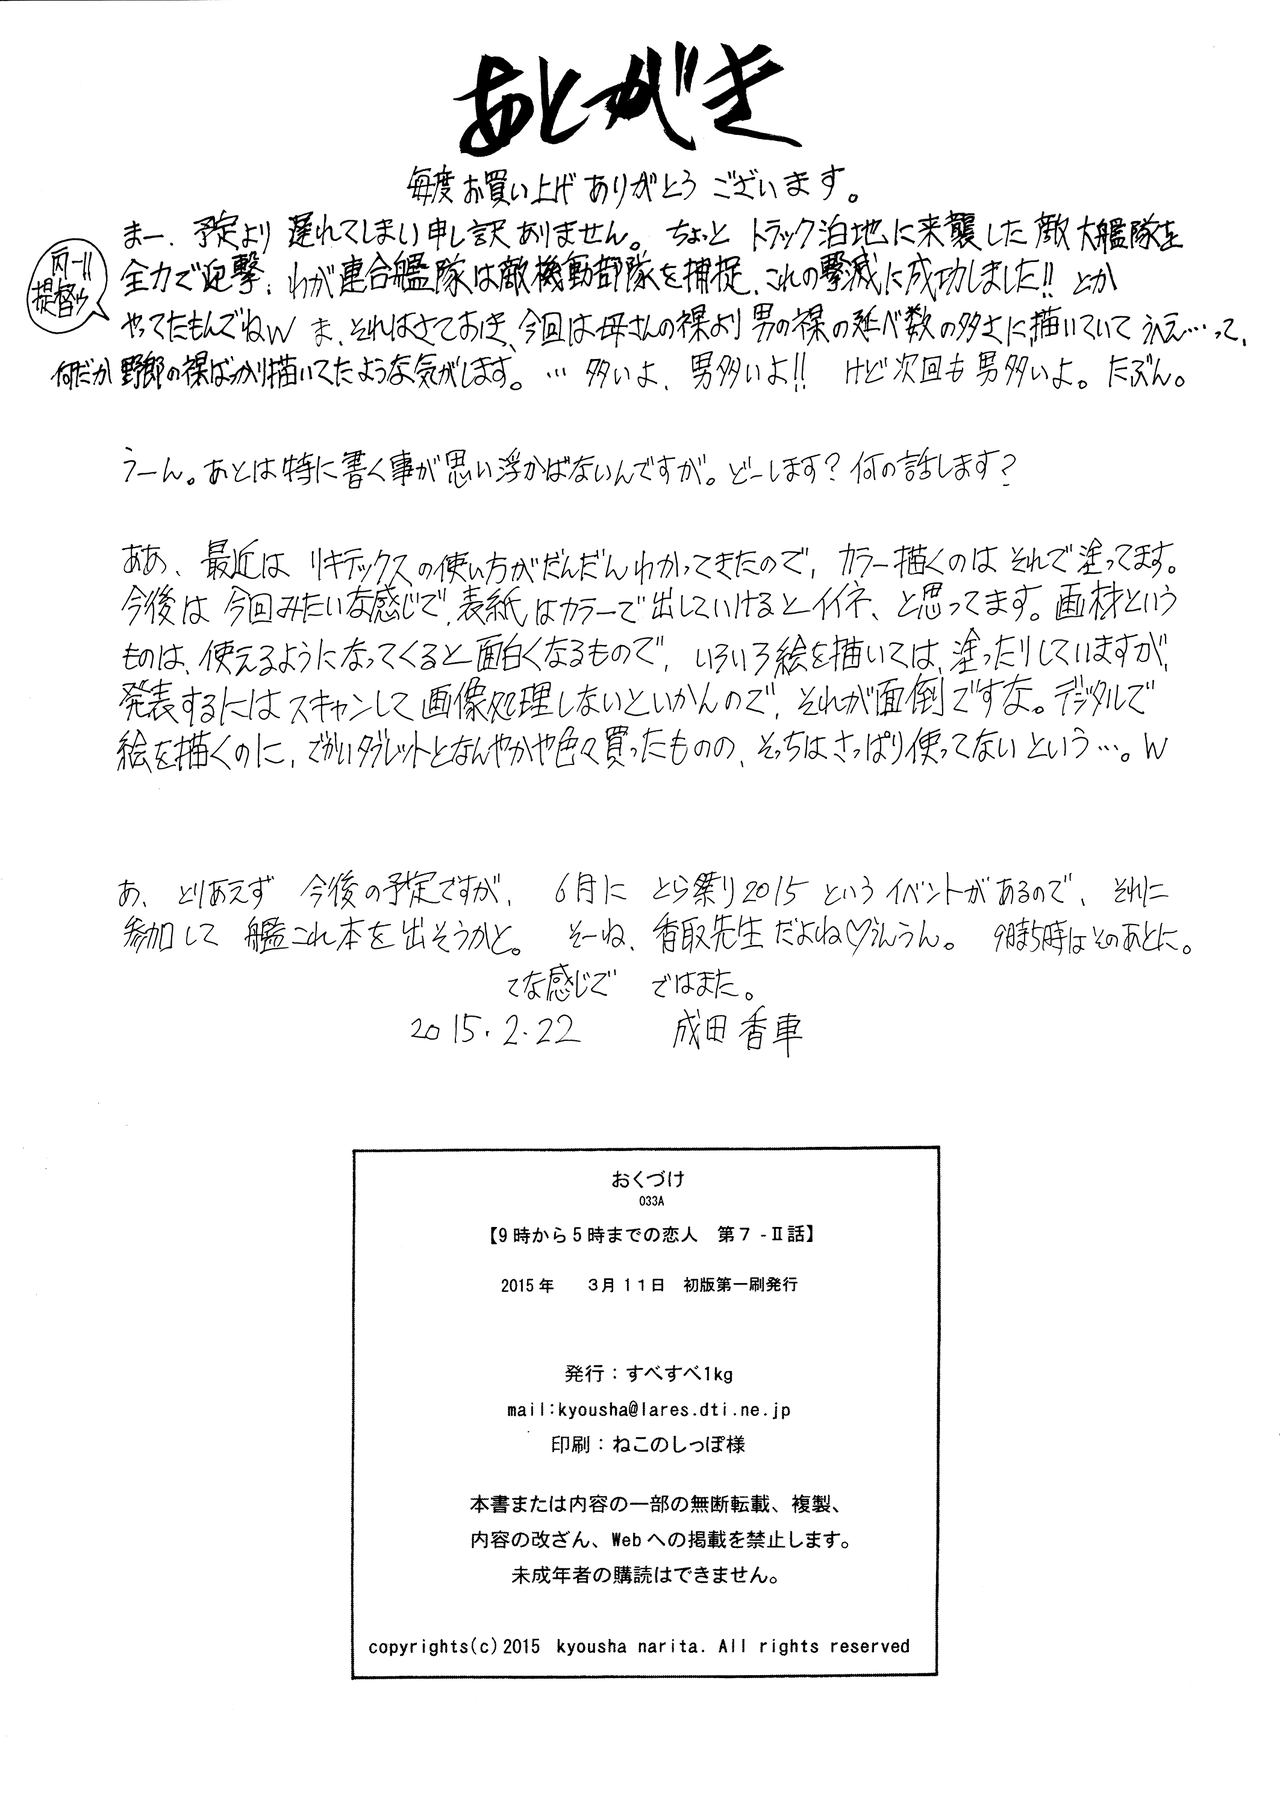 あとがき
毎度お買い上げありがとうございます。
まー、予定より遅れてしまい申し訳ありません。ちょっとトラック泊地に来襲した敵大艦隊を
全力で迎撃；わが連合艦隊は敵機動部隊を捕捉、これの撃滅に成功しました!! とか
丙ーー!!
提督ゥ
やってたもんでねw ま、それはさておき、今回は母さんの裸より男の裸の延べ数の多さに、描いていてうへえ…って、
何だか野郎の裸ばっかり描いてたような気がします。… 多いよ、男多いよ!! けど次回も男多いよ。たぶん。
うーん。あとは特に書く事が思い浮かばないんですが。どーします？何の話します？
ああ、最近はリキテックスの使い方がだんだんわかってきたので、カラー描くのはそれで塗ってます。
今後は今回みたいな感じで、表紙はカラーで出していけるとイイネ、と思ってます。画材という
ものは、使えるようになってくると面白くなるもので、いろいろ絵を描いては、塗ったりしていますが、
発表するにはスキャンして画像処理しないといかんので、それが面倒ですな。デジタルで
絵を描くのに、でかいタブレットとなんやかや色々買ったものの、そっちはさっぱり使ってないという…。w
あ、とりあえず 今後の予定ですが、 6月に とら祭り2015 というイベントがあるので、それに
参加して 艦これ本を出そうかと。 そーね、香取先生だよね♡うんうん。 9時5時はそのあとに。
てな感じで ではまた。
2015.2.22 成田香車
おくづけ
033A
【9時から5時までの恋人 第7-Ⅱ話】
2015年 3月11日 初版第一刷発行
発行：すべすべ1kg
mail:kyousha@lares.dti.ne.jp
印刷：ねこのしっぽ様
本書または内容の一部の無断転載、複製、
内容の改ざん、Webへの掲載を禁止します。
未成年者の購読はできません。
copyrights(c)2015 kyousha narita. All rights reserved